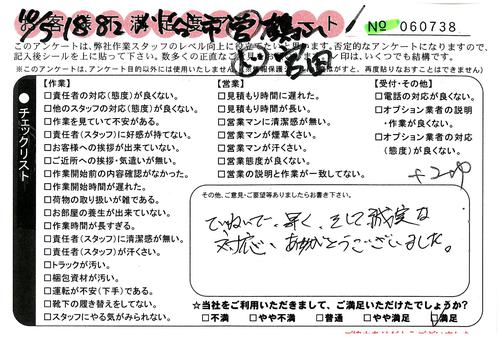 お客様満足度アンケート
No 060738
このアンケートは、弊社作業スタッフのレベル向上に役立てたいと思います。否定的なアンケートになりますので、
※このアンケートは、アンケート目的以外には使用いたしません。
チェックリスト
【作業】
□責任者の対応(態度)が良くない。
□他のスタッフの対応(態度)が良くない。
□作業を見ていて不安がある。
□責任者(スタッフ)に好感が持てない。
□お客様への挨拶が出来ていない。
□ご近所への挨拶・気遣いが無い。
□作業開始前の内容確認がなかった。
□作業開始時間が遅れた。
□荷物の取り扱いが雑である。
□お部屋の養生が出来ていない。
□作業時間が長すぎる。
□責任者(スタッフ)に清潔感が無い。
□責任者(スタッフ)が汗くさい。
□トラックが汚い。
□梱包資材が汚い。
□運転が不安(下手)である。
□靴下の履き替えをしてない。
□スタッフにやる気がみられない。
【営業】
□見積もり時間に遅れた。
□見積もり時間が長い。
□営業マンに清潔感が無い。
□営業マンが煙草くさい。
□営業マンが汗くさい。
□営業態度が良くない。
□営業の説明と作業が一致してない。
【受付・その他】
□電話の対応が良くない。
□オプション業者の説明
・作業が良くない。
□オプション業者の対応
(態度)が良くない。
その他、ご意見・ご要望等ありましたらお書き下さい。
ていねいで、早く、そして誠実な
対応、ありがとうございました。
☆当社をご利用いただきまして、ご満足いただけたでしょうか?
□不満 □やや不満 □普通 □やや満足 □満足